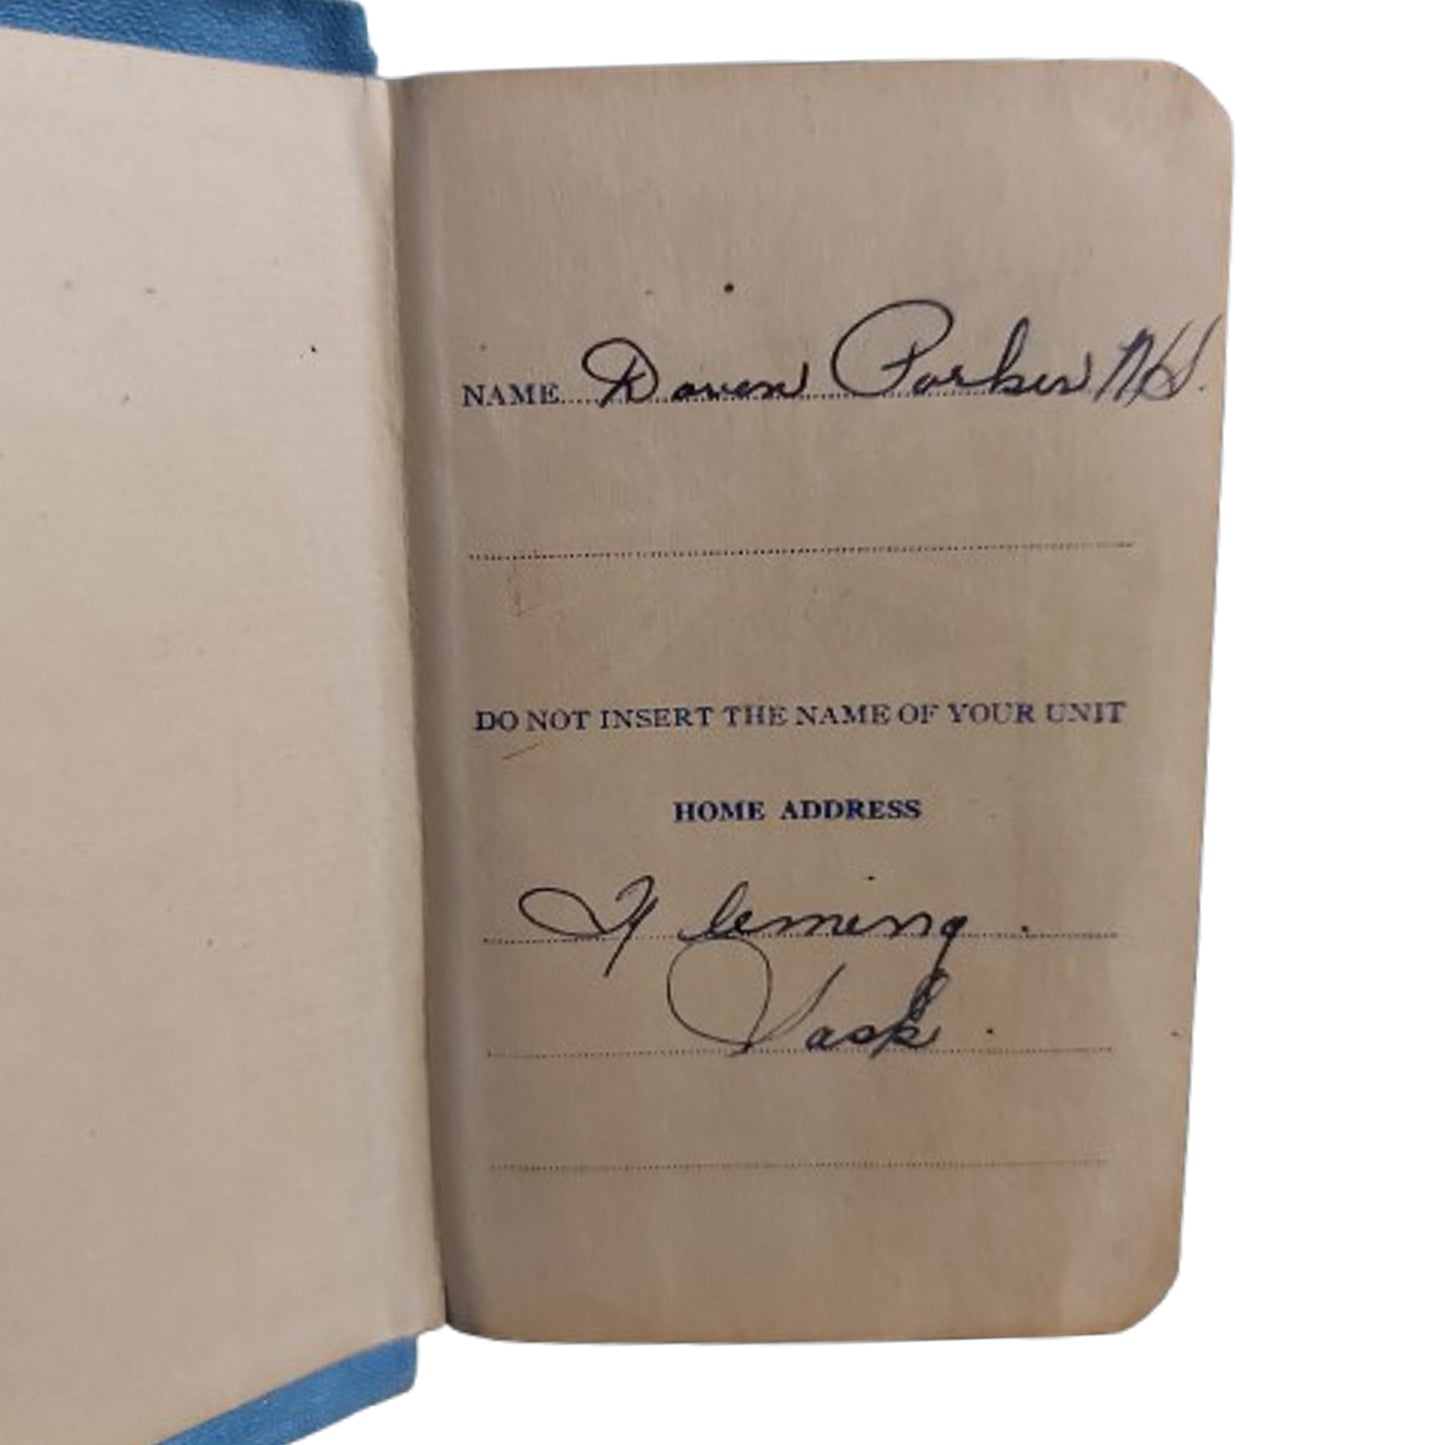 NAME Doven Parker
DO NOT INSERT THE NAME OF YOUR UNIT
HOME ADDRESS
Fleming.
Sask.